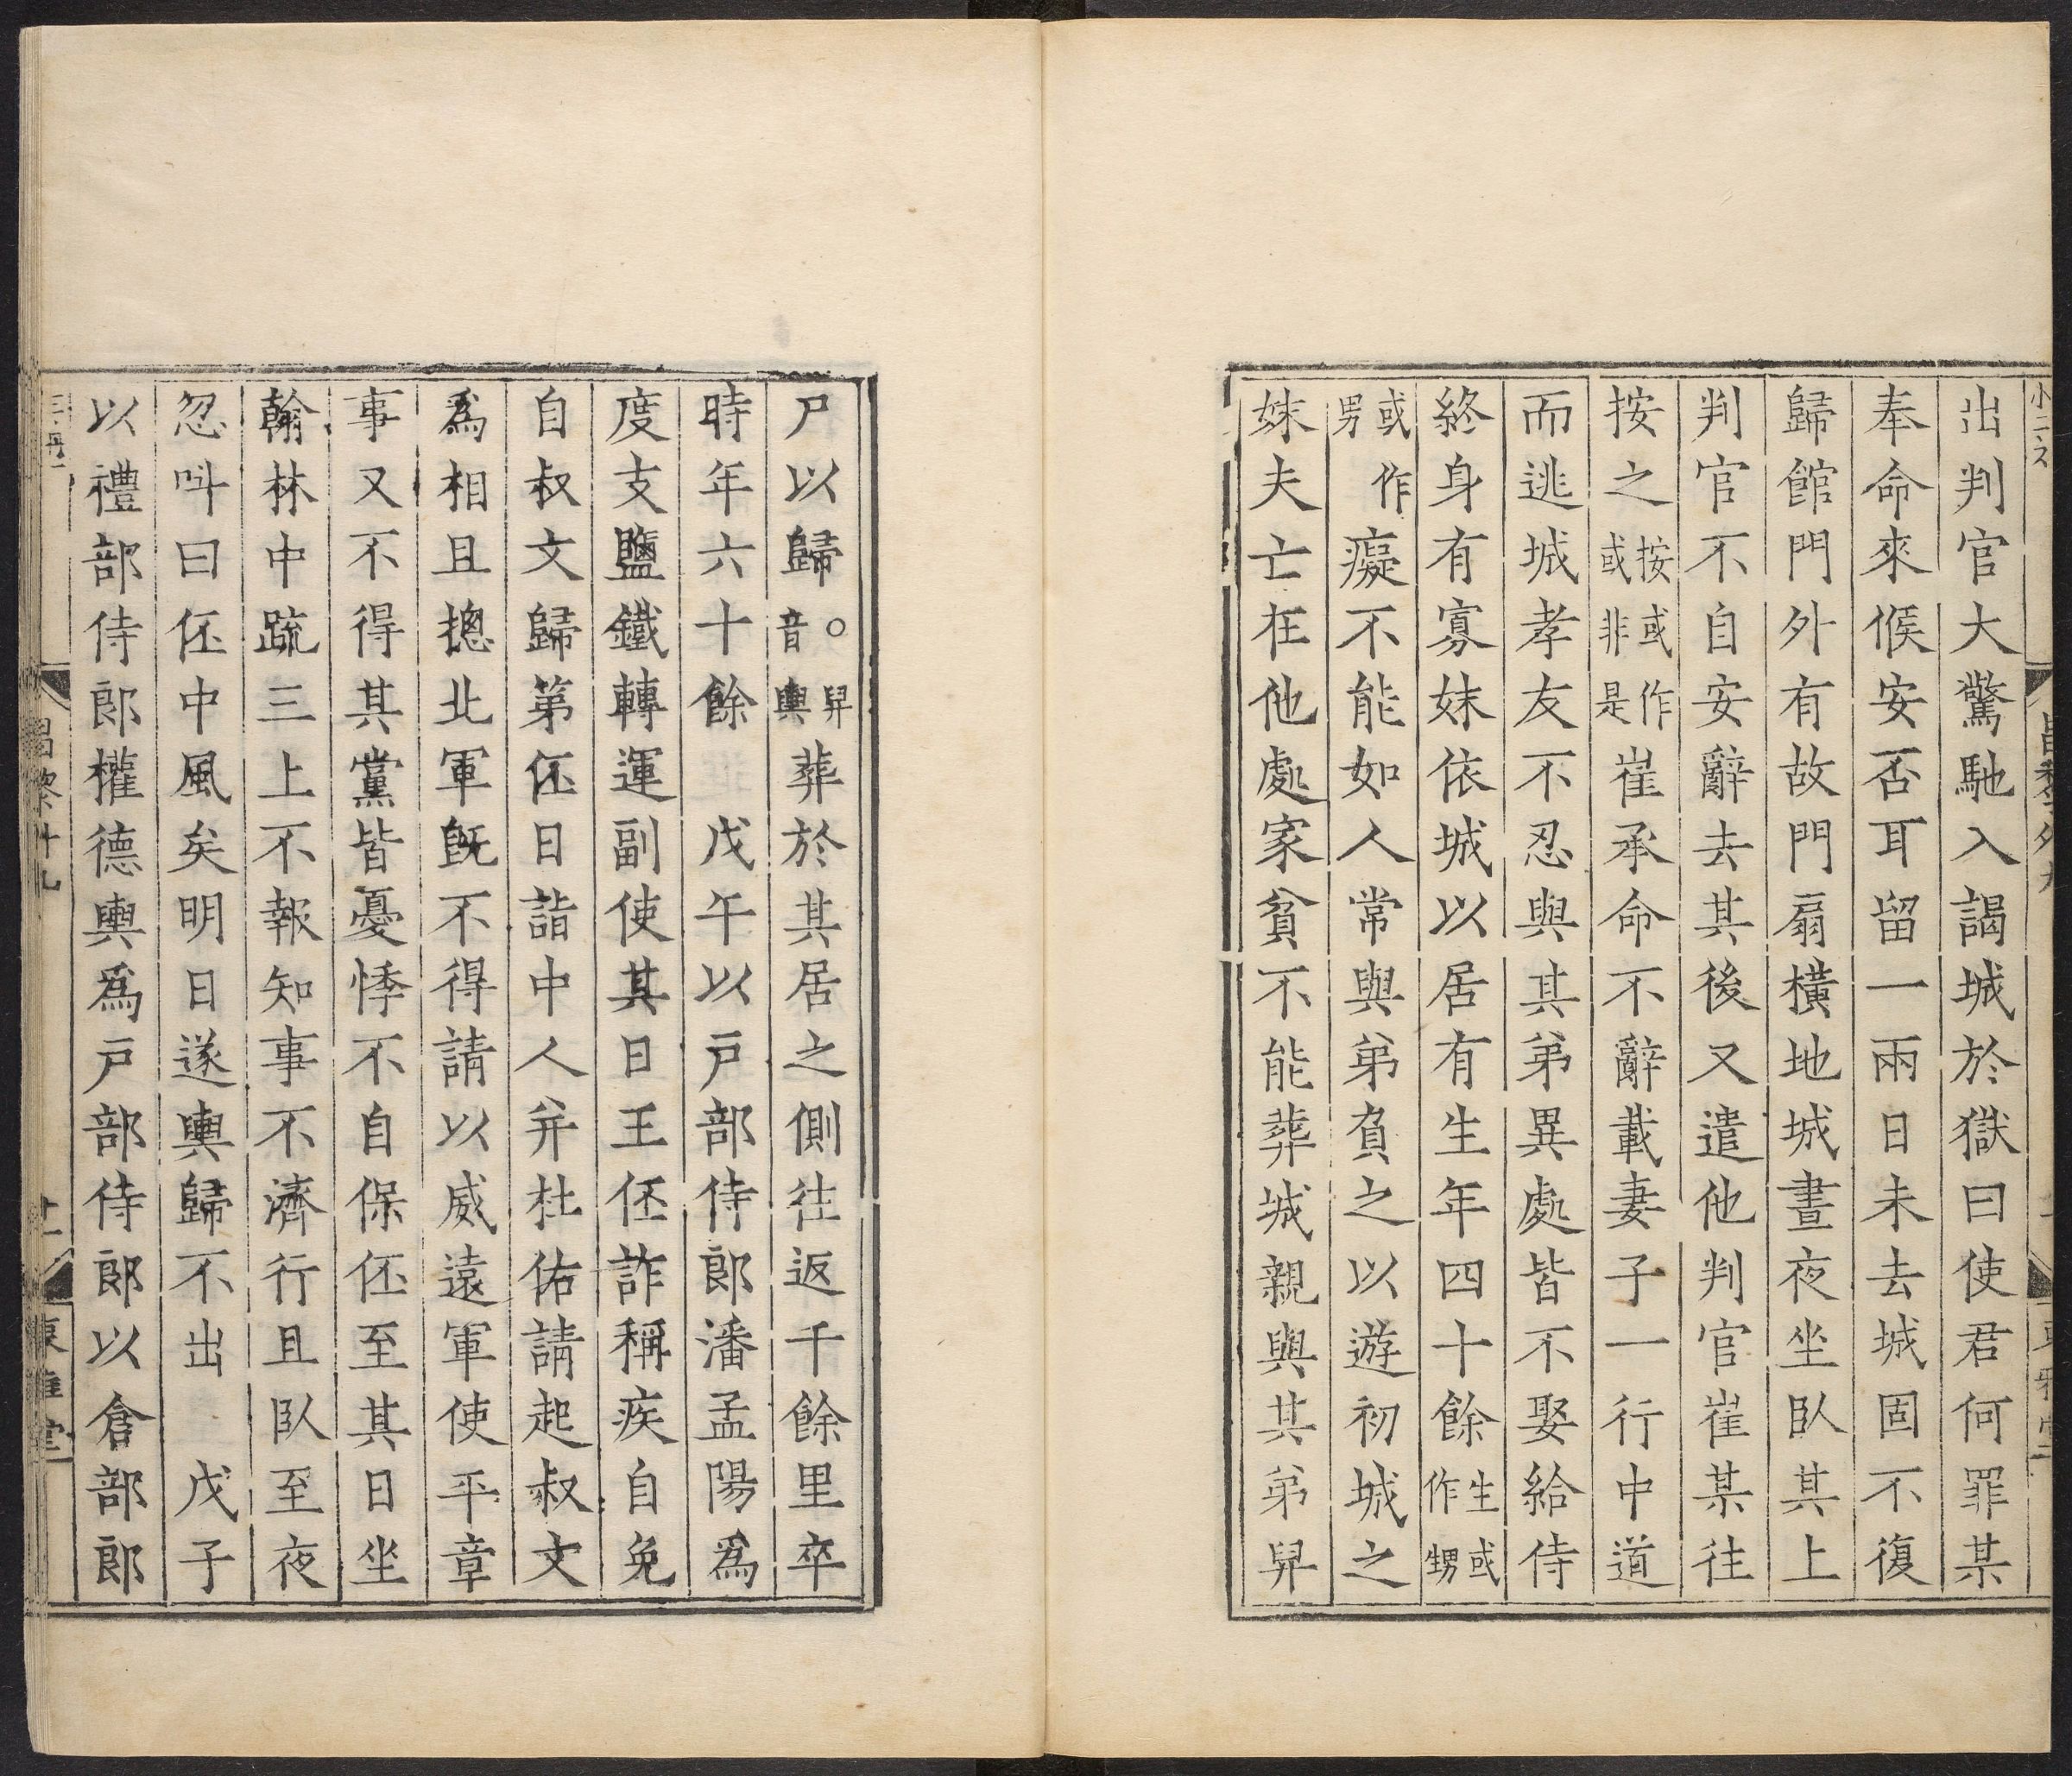 出判官大驚馳入謁城於獄曰使君何罪某
奉命來候安否耳留一兩日未去城固不復
歸館門外有故門扇橫地城晝夜坐臥其上
判官不自安辭去其後又遣他判官崔某往
按之按或作或非是崔承命不辭載妻子一行中道
而逃城孝友不忍與其弟異處皆不娶給侍
終身有寡妹依城以居有生年四十餘生或作甥
或作男癡不能如人常與弟負之以遊初城之
妹夫亡在他處家貧不能葬城親與其弟舁
尸以歸○舁音輿葬於其居之側往返千餘里卒
時年六十餘 戊午以戸部侍郎潘孟陽爲
度支鹽鐵轉運副使其日王伾詐稱疾自免
自叔文歸第伾日詣中人并杜佑請起叔文
爲相且摠北軍旣不得請以威遠軍使平章
事又不得其黨皆憂悸不自保伾至其日坐
翰林中疏三上不報知事不濟行且臥至夜
忽呌曰伾中風矣明日遂輿歸不出 戊子
以禮部侍郎權德輿爲戸部侍郎以倉部郎
昌黎外九
東雅堂